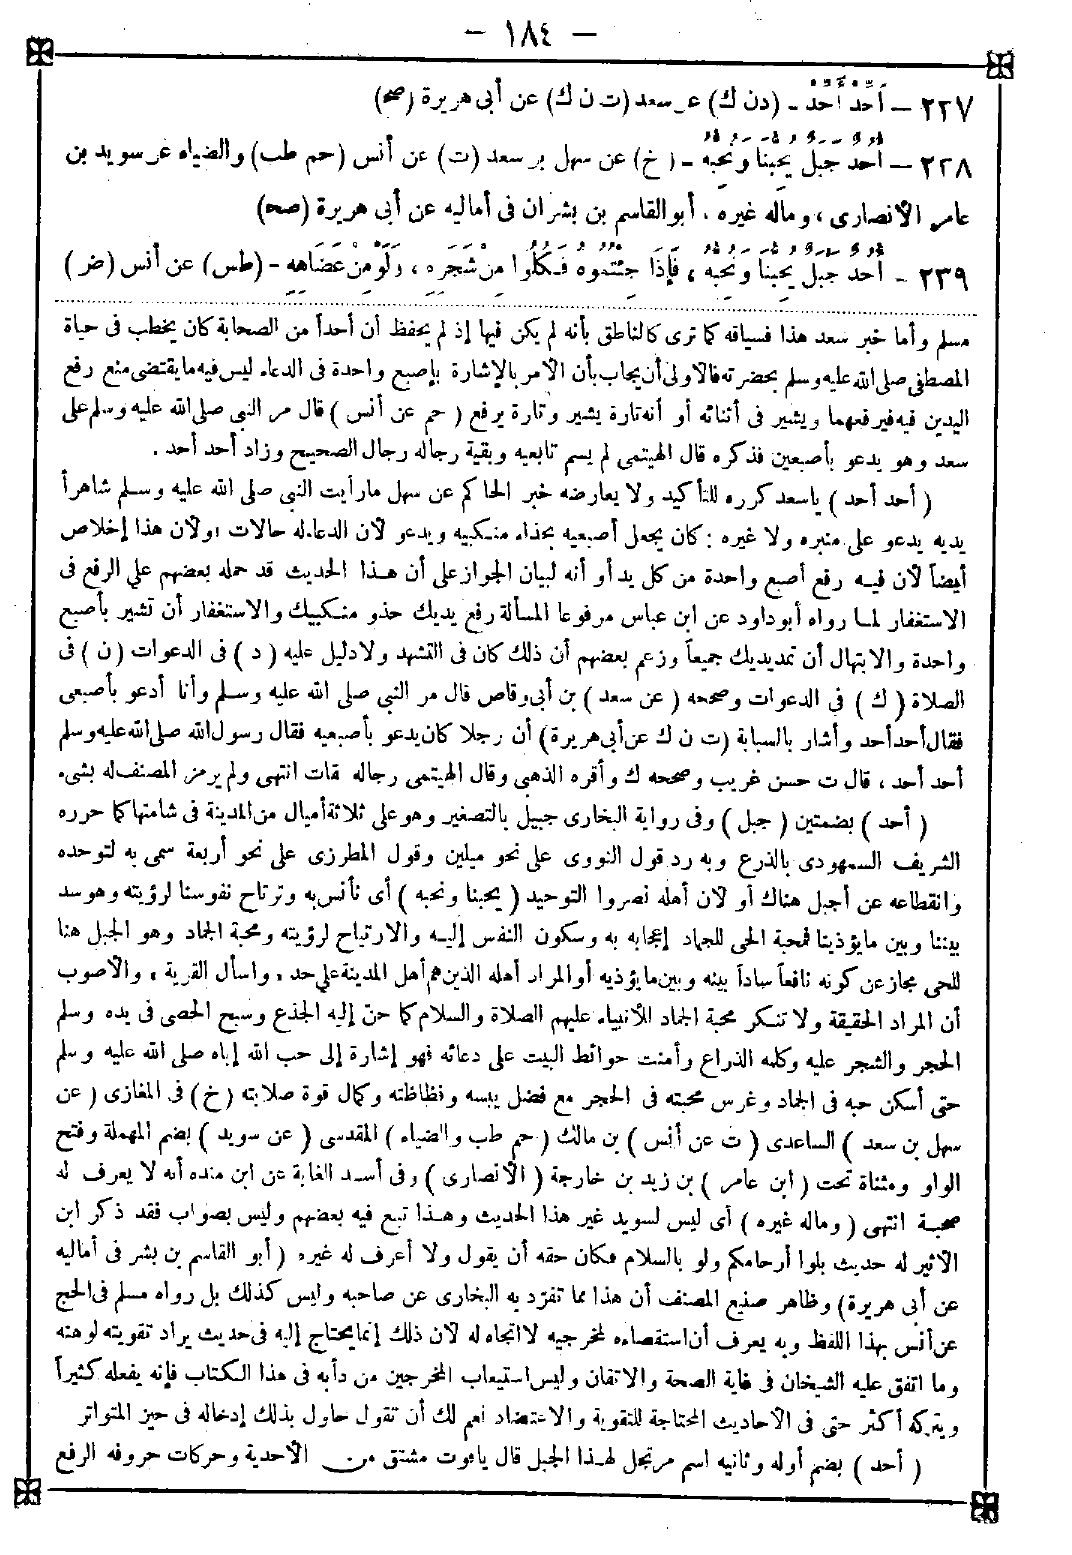 - ١٨٤ -
٢٢٧ - أَحِّدْ أَحِّدْ - (د ن ك) عن سعد (ت ن ك) عن أبى هريرة (صح)
٢٢٨ - أُحُدٌ جَبَلٌ يُحِبُّنَا وَنُحِبُّهُ - (خ) عن سهل بن سعد (ت) عن أنس (حم طب) والضياء عن سويد بن
عامر الأنصارى، وماله غيره، أبو القاسم بن بشران فى أماليه عن أبى هريرة (صح)
٢٣٩ - أُحُدٌ جَبَلٌ يُحِبُّنَا وَنُحِبُّهُ، فَإِذَا جِئْتُمُوهُ فَكُلُوا مِنْ شَجَرِهِ، وَلَوْ مِنْ عِضَاهِهِ - (طس) عن أنس (ض)
مسلم وأما خبر سعد هذا فسياقه كما ترى كالناطق بأنه لم يكن فيها إذ لم يحفظ أن أحداً من الصحابة كان يخطب فى حياة
المصطفى صلى الله عليه وسلم بحضرته فالأولى أن يجاب بأن الأمر بالإشارة بإصبع واحدة فى الدعاء ليس فيه ما يقتضى منع رفع
اليدين فيه فيرفعهما ويشير فى أثنائه أو أنه تارة يشير وتارة يرفع (حم عن أنس) قال مر النبى صلى الله عليه وسلم على
سعد وهو يدعو بأصبعين فذكره قال الهيتمى لم يسم تابعيه وبقية رجاله رجال الصحيح وزاد أحد أحد.
(أحد أحد) ياسعد كرره للتأكيد ولا يعارضه خبر الحاكم عن سهل مارأيت النبى صلى الله عليه وسلم شاهراً
يديه يدعو على منبره ولا غيره: كان يجعل أصبعيه بحذاء منكبيه ويدعو لأن الدعاء له حالات، ولأن هذا إخلاص
أيضاً لأن فيه رفع أصبع واحدة من كل يد أو أنه لبيان الجواز على أن هذا الحديث قد حمله بعضهم على الرفع فى
الاستغفار لما رواه أبو داود عن ابن عباس مرفوعا المسألة رفع يديك حذو منكبيك والاستغفار أن تشير بأصبع
واحدة والابتهال أن تمد يديك جميعاً وزعم بعضهم أن ذلك كان فى التشهد ولا دليل عليه (د) فى الدعوات (ن) فى
الصلاة (ك) فى الدعوات وصححه (عن سعد) بن أبى وقاص قال مر النبى صلى الله عليه وسلم وأنا أدعو بأصبعى
فقال أحد أحد وأشار بالسبابة (ت ن ك عن أبى هريرة) أن رجلا كان يدعو بأصبعيه فقال رسول الله صلى الله عليه وسلم
أحد أحد، قال ت حسن غريب وصححه ك وأقره الذهبى وقال الهيتمى رجاله ثقات انتهى ولم يرمز المصنف له بشىء
(أحد) بضمتين (جبل) وفى رواية البخارى جبيل بالتصغير وهو على ثلاثة أميال من المدينة فى شامتها كما حرره
الشريف السمهودى بالذرع وبه رد قول النووى على نحو ميلين وقول المطرزى على نحو أربعة سمى به لتوحده
وانقطاعه عن أجبل هناك أو لأن أهله نصروا التوحيد (يحبنا ونحبه) أى نأنس به وترتاح نفوسنا لرؤيته وهو سد
بيننا وبين ما يؤذينا فمحبة الحى للجماد إعجابه به وسكون النفس إليه والارتياح لرؤيته ومحبة الجماد وهو الجبل هنا
للحى مجاز عن كونه نافعاً ساداً بينه وبين ما يؤذيه أو المراد أهله الذين هم أهل المدينة على حد، واسأل القرية، والأصوب
أن المراد الحقيقة ولا تنكر محبة الجماد للأنبياء عليهم الصلاة والسلام كما حن إليه الجذع وسبح الحصى فى يده وسلم
الحجر والشجر عليه وكلمه الذراع وأمنت حوائط البيت على دعائه فهو إشارة إلى حب الله إياه صلى الله عليه وسلم
حتى أسكن حبه فى الجماد وغرس محبته فى الحجر مع فضل يبسه وفظاظته وكمال قوة صلابته (خ) فى المغازى (عن
سهل بن سعد) الساعدى (ت عن أنس) بن مالك (حم طب والضياء) المقدسى (عن سويد) بضم المهملة وفتح
الواو ومثناة تحت (ابن عامر) بن زيد بن خارجة (الأنصارى) وفى أسد الغابة عن ابن منده أنه لا يعرف له
صحبة انتهى (وماله غيره) أى ليس لسويد غير هذا الحديث وهذا تبع فيه بعضهم وليس بصواب فقد ذكر ابن
الأثير له حديث بلوا أرحامكم ولو بالسلام فكان حقه أن يقول ولا أعرف له غيره (أبو القاسم بن بشر فى أماليه
عن أبى هريرة) وظاهر صنيع المصنف أن هذا مما تفرد به البخارى عن صاحبه وليس كذلك بل رواه مسلم فى الحج
عن أنس بهذا اللفظ وبه يعرف أن استقصاءه لمخرجيه لا اتجاه له لأن ذلك إنما يحتاج إليه فى حديث يراد تقويته لوهنه
وما اتفق عليه الشيخان فى غاية الصحة والاتقان وليس استيعاب المخرجين من دأبه فى هذا الكتاب فإنه يفعله كثيراً
ويتركه أكثر حتى فى الأحاديث المحتاجة للتقوية والاعتضاد نعم لك أن تقول حاول بذلك إدخاله فى حيز المتواتر
(أحد) بضم أوله وثانيه اسم مرتجل لهذا الجبل قال ياقوت مشتق من الأحدية وحركات حروفه الرفع